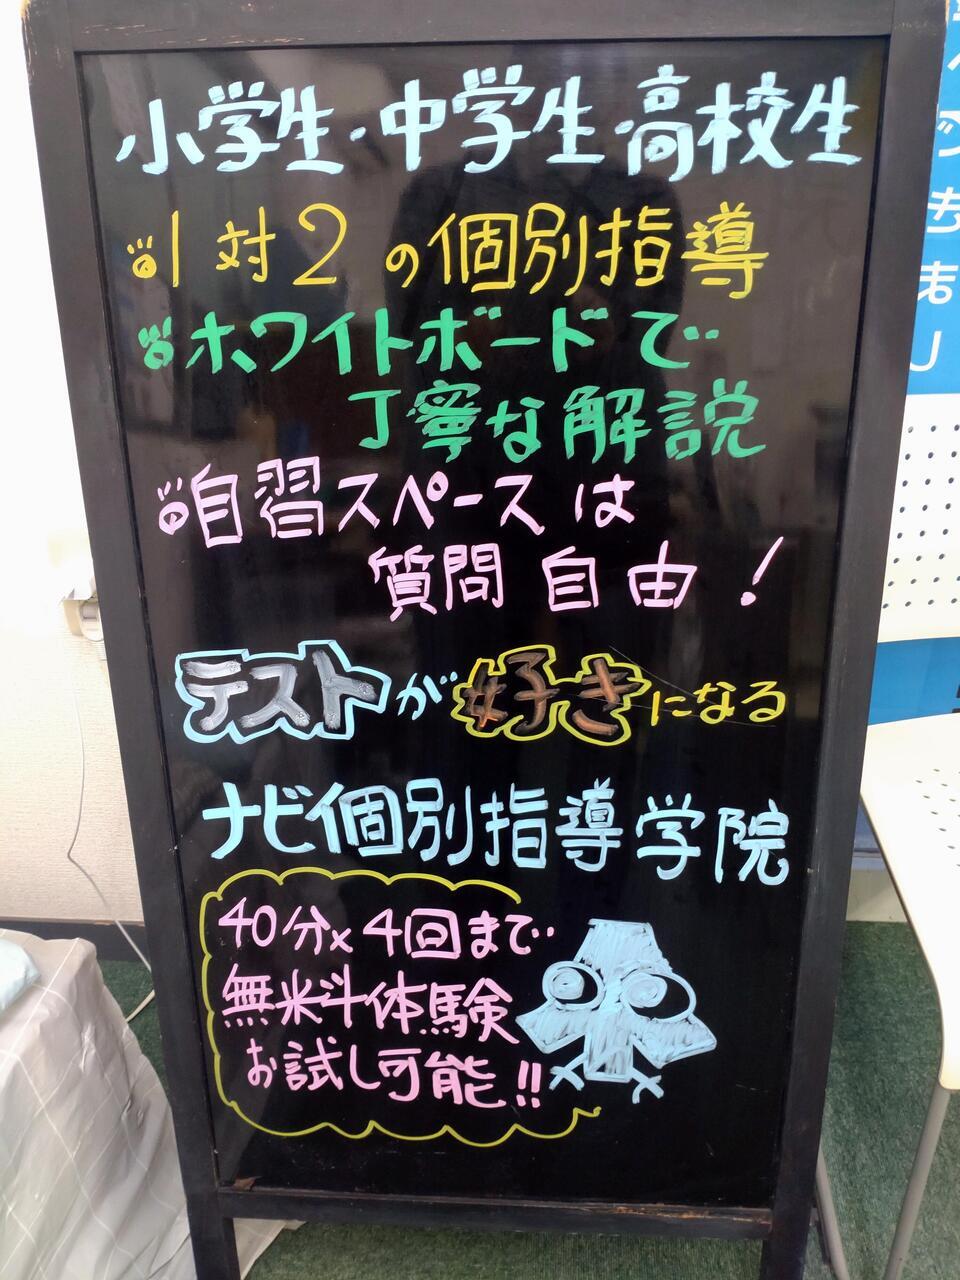 小学生・中学生・高校生
1対2の個別指導
ホワイトボードで
丁寧な解説
自習スペースは
質問自由！
テストが好きになる
ナビ個別指導学院
40分×4回まで
無料体験
お試し可能!!